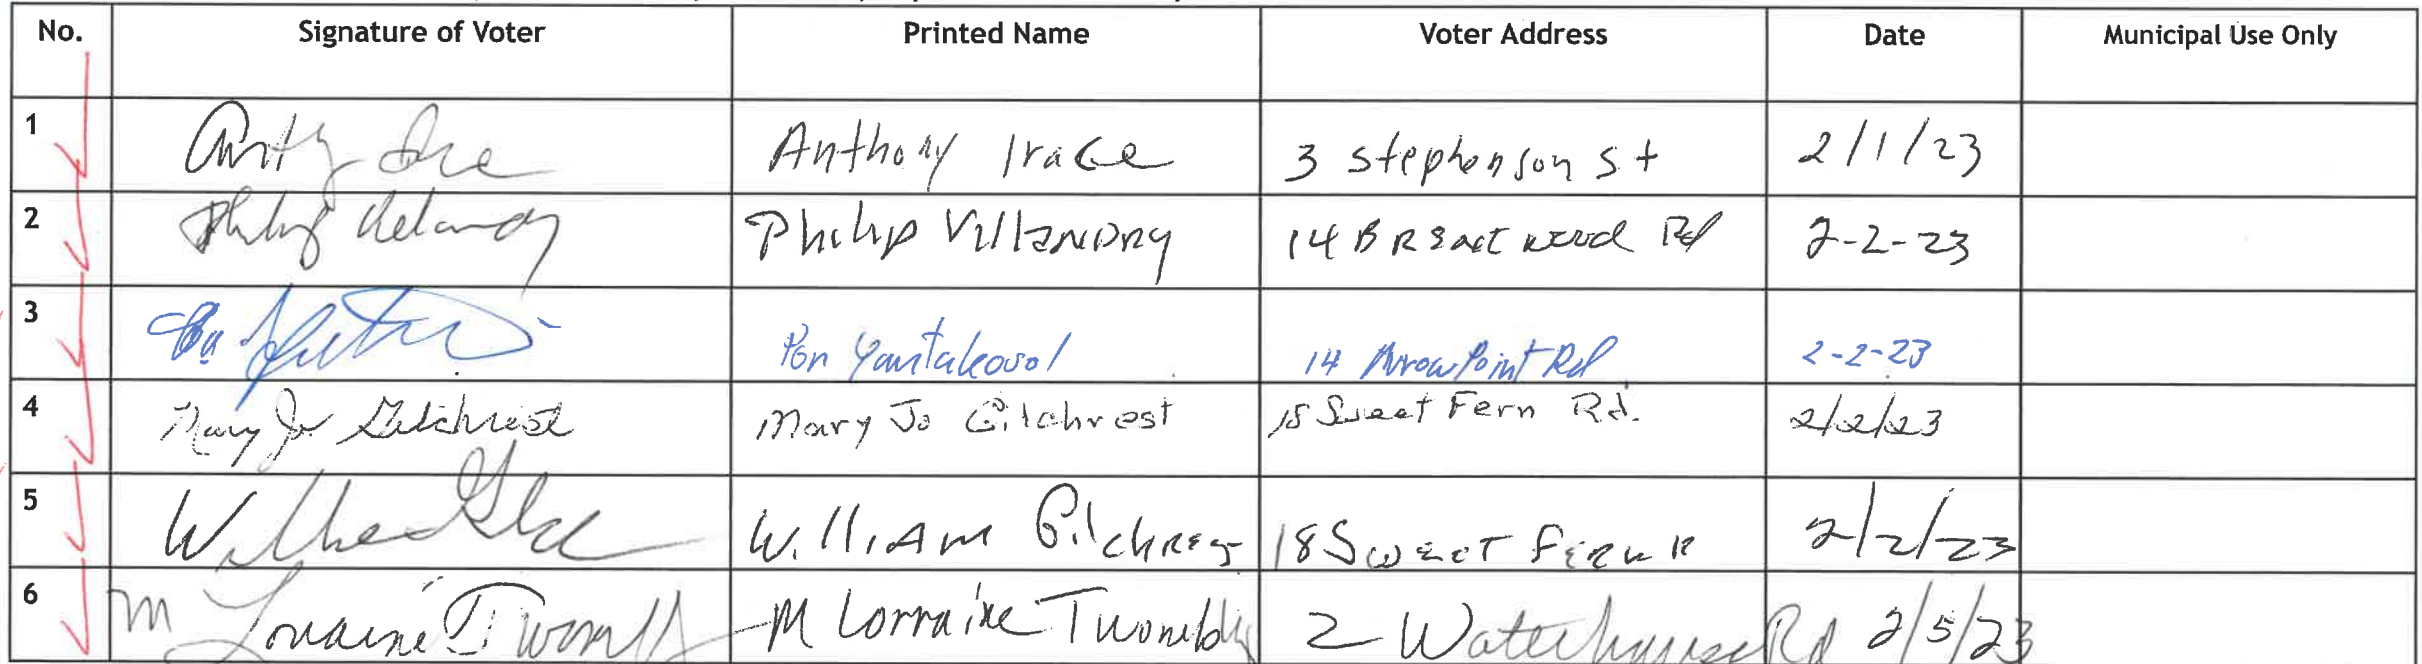 No. Signature of Voter Printed Name Voter Address Date Municipal Use Only
1 Anthony Irace 3 Stephenson St 2/1/23
2 Philip Villandry 14 Brentwood Rd 2-2-23
3 Pon Yantakosol 14 Arrow Point Rd 2-2-23
4 Mary Jo Gilchrest Mary Jo Gilchrest 18 Sweet Fern Rd. 2/2/23
5 William Gilchres 18 Sweet Fern R 2/2/23
6 M Lorraine Twombly M Lorraine Twombly 2 Waterhouse Rd 2/5/23